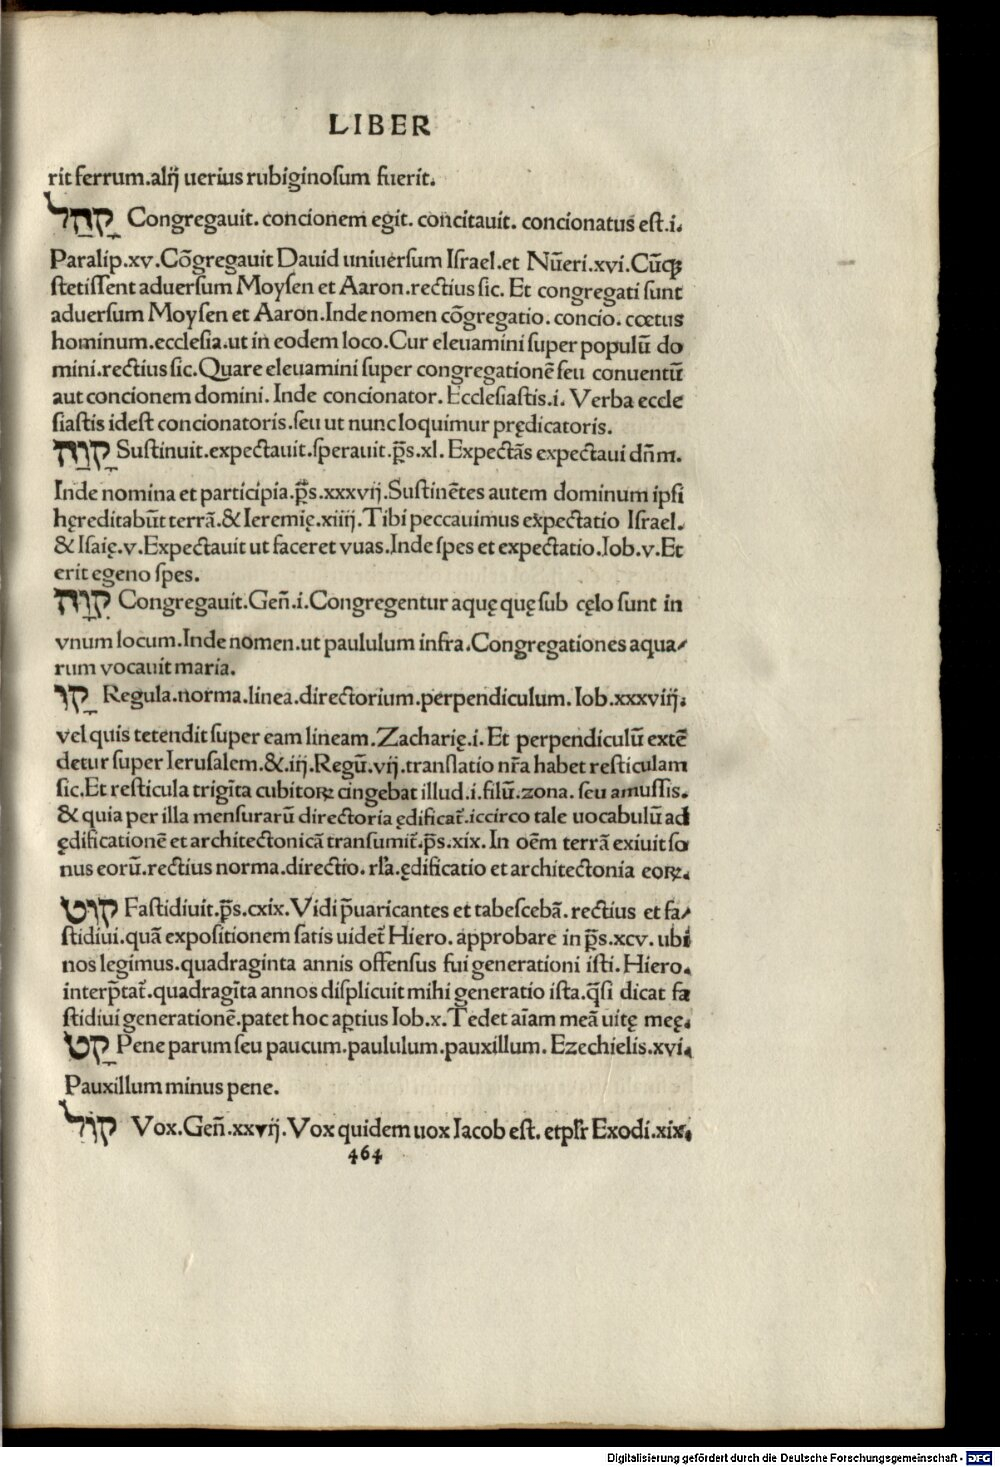 LIBER
rit ferrum.alij uerius rubiginosum fuerit.
קָהַל Congregauit. concionem egit. concitauit. concionatus est.i.
Paralip.xv.Cōgregauit Dauid uniuersum Israel.et Nūeri.xvi.Cūqꝫ
stetissent aduersum Moysen et Aaron.rectius sic. Et congregati sunt
aduersum Moysen et Aaron.Inde nomen cōgregatio. concio. cœtus
hominum.ecclesia.ut in eodem loco.Cur eleuamini super populū do
mini.rectius sic.Quare eleuamini super congregationē seu conuentū
aut concionem domini. Inde concionator. Ecclesiastis.i. Verba eccle
siastis idest concionatoris.seu ut nunc loquimur prędicatoris.
קָוָה Sustinuit.expectauit.sperauit.p̄s.xl. Expectās expectaui dn̄m.
Inde nomina et participia.p̄s.xxxvij.Sustinētes autem dominum ipsi
hęreditabūt terrā.& Ieremię.xiiij.Tibi peccauimus expectatio Israel.
& Isaię.v.Expectauit ut faceret vuas.Inde spes et expectatio.Iob.v.Et
erit egeno spes.
קָוָה Congregauit.Gen̄.i.Congregentur aquę quę sub cęlo sunt in
vnum locum.Inde nomen.ut paululum infra.Congregationes aqua-
rum vocauit maria.
קַו Regula.norma.linea.directorium.perpendiculum. Iob.xxxviij.
vel quis tetendit super eam lineam.Zacharię.i. Et perpendiculū extē
detur super Ierusalem.&.iij.Regū.vij.translatio nr̄a habet resticulam
sic.Et resticula trigīta cubitoꝝ cingebat illud.i.filū.zona. seu amussis.
& quia per illa mensurarū directoria ędificat̄.iccirco tale uocabulū ad
ędificationē et architectonicā transumit̄.p̄s.xix. In oēm terrā exiuit so
nus eorū.rectius norma.directio. rl̄a.ędificatio et architectonia eoꝝ.
קוּט Fastidiuit.p̄s.cxix.Vidi p̄uaricantes et tabescebā. rectius et fa-
stidiui.quā expositionem satis uidet̄ Hiero. approbare in p̄s.xcv. ubi
nos legimus.quadraginta annis offensus fui generationi isti. Hiero.
interp̄tat̄.quadragīta annos displicuit mihi generatio ista.q̄si dicat fa
stidiui generationē.patet hoc aptius Iob.x.Tedet aīam meā uitę meę.
קָט Pene parum seu paucum.paululum.pauxillum. Ezechielis.xvi.
Pauxillum minus pene.
קוֹל Vox.Gen̄.xxvij.Vox quidem uox Iacob est. et pl̄r Exodi.xix.
464
Digitalisierung gefördert durch die Deutsche Forschungsgemeinschaft - DFG